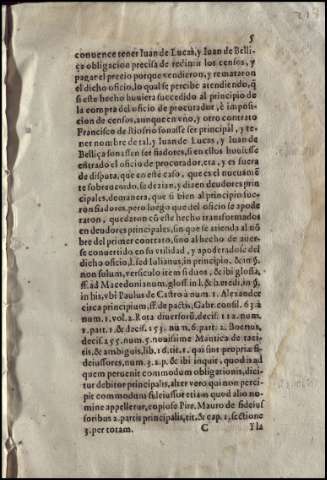 5
conuence tener Iuan de Lucas, y Iuan de Belli-
ça obligacion precisa de redimir los censos, y
pagar el precio porque vendieron, y remataron
el dicho oficio, lo qual se percibe atendiendo, q̃
si este hecho huuiera succedido al principio de
la compra del oficio de procurador, è imposi-
cion de censos, aunque en vno, y otro contrato
Francisco de Riofrio sonasse ser principal, y te-
ner nombre de tal, y Iuan de Lucas, y Iuan de
Belliça sonassen ser fiadores, si en ellos huuiesse
entrado el oficio de procurador, era, y es fuera
de disputa, que en este caso, que es el
te sobreacordo, se dezian, y dizen deudores prin
cipales, de manera, que si bien al principio fue-
ron fiadores, pero luego que del oficio se apode
raron, quedaron cõ este hecho transformados
en deudores principales, sin que se atienda al nõ
bre del primer contrato, sino al hecho de auer-
se conuertido en su vtilidad, y apoderadose del
dicho oficio, l. sed Iulianus, in principio, & in §.
non solum, versiculo item si duos, & ibi glossa,
ff. ad Macedonianum, gloss. in l. & h. medi, in §.
in his, vbi Paulus de Castro à num. 1. Alexander
circa principium, ff. de pactis, Gabr. consil. 63. à
num. 1. vol. 2. Rota diuersorũ, decis. 112. num.
1. part. 1. & decis. 153. num. 6. part. 2. Buenos,
decis. 255. num. 5. nouissime Mantica de taci-
tis, & ambiguis, lib. 16. tit. 1. qui sint proprie fi-
deiussores, num. 3. 2. p. & ibi inquit, quod is ad
quem peruenit commodum obligationis, dici-
tur debitor principalis, alter vero qui non perci-
pit commodum fideiussor etiam quod alio no-
mine appelletur, copiose Pire. Mauro de fideius
soribus 2. partis principalis, tit. & cap. 1. sectione
3. per totam.
C
Y la